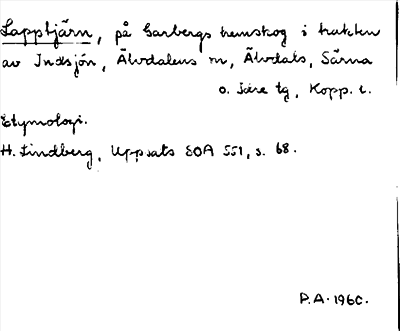 Lapptjärn, på Garbergs hemskog i trakten
av Indsjön, Älvdalens sn, Älvdals, Särna
o. Idre tg, Kopp. l.
Etymologi.
H. Lindberg, Uppsats SOA 551, s. 68.
P.A. 1960.